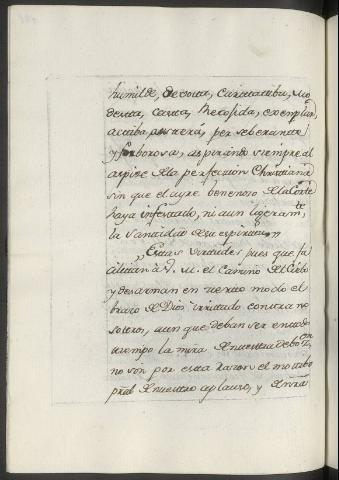 humilde, devota, caritatiba, mo
desta, casta, Recojida, exemplar,
actiba, austera, perseberante
y ferborosa, aspirando siempre al
apice de la perfeccion Christiana
sin que el ayre benenoso de la Corte
haya infestado, ni aun ligeramte
la Santidad de su espiritu.
Estas virtudes pues que fa
cilitan à V. M. el Camino del Cielo
y desarman en cierto modo el
brazo de Dios irritado contra no
sotros, aun que deban ser en todo
tiempo la mira de nuestra deboon,
no son por esta razon el motibo
pral de nuestro aplauso, y de nra